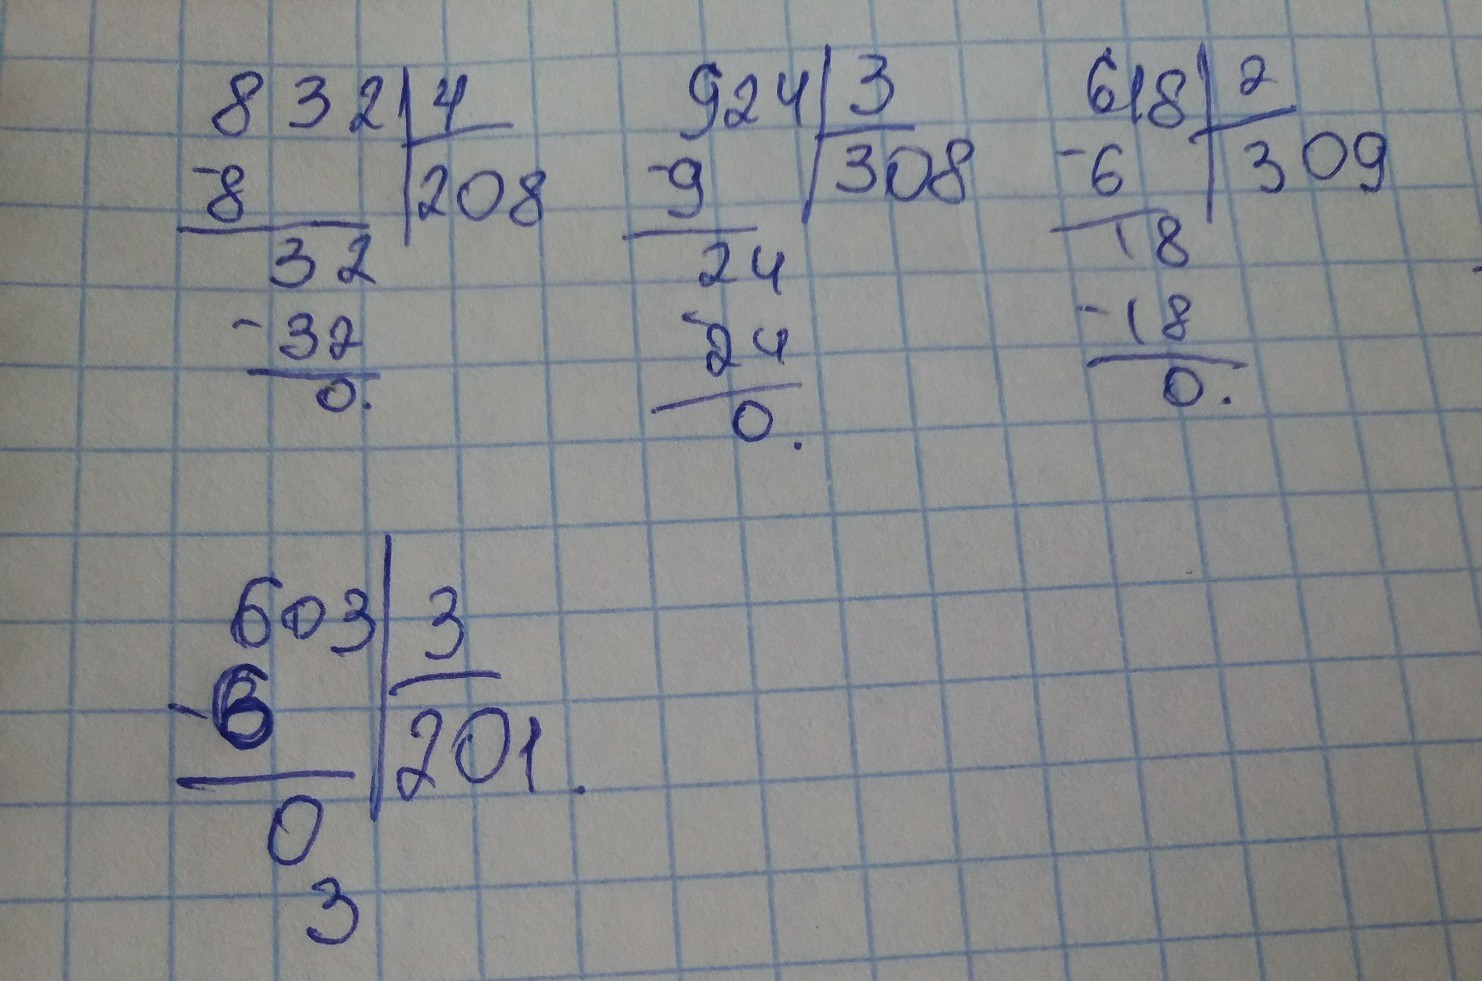 832 4
-8 208
32
-32
0.
924 3
-9 308
24
-24
0.
618 2
-6 309
18
-18
0.
603 3
-6 201.
0
3